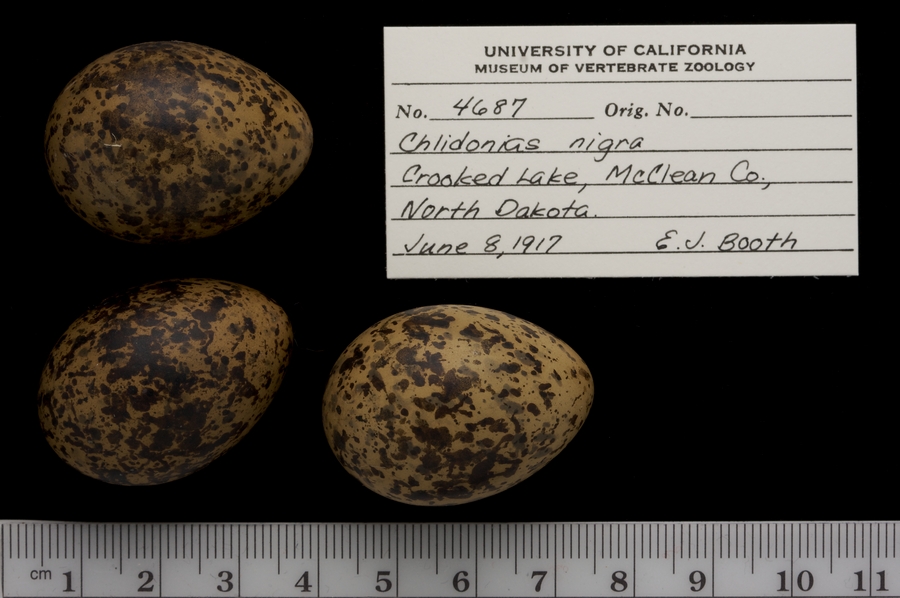 UNIVERSITY OF CALIFORNIA
MUSEUM OF VERTEBRATE ZOOLOGY
No. 4687 Orig. No.
Chlidonias nigra
Crooked Lake, McClean Co.,
North Dakota.
June 8, 1917 E.J. Booth
cm 1 2 3 4 5 6 7 8 9 10 11